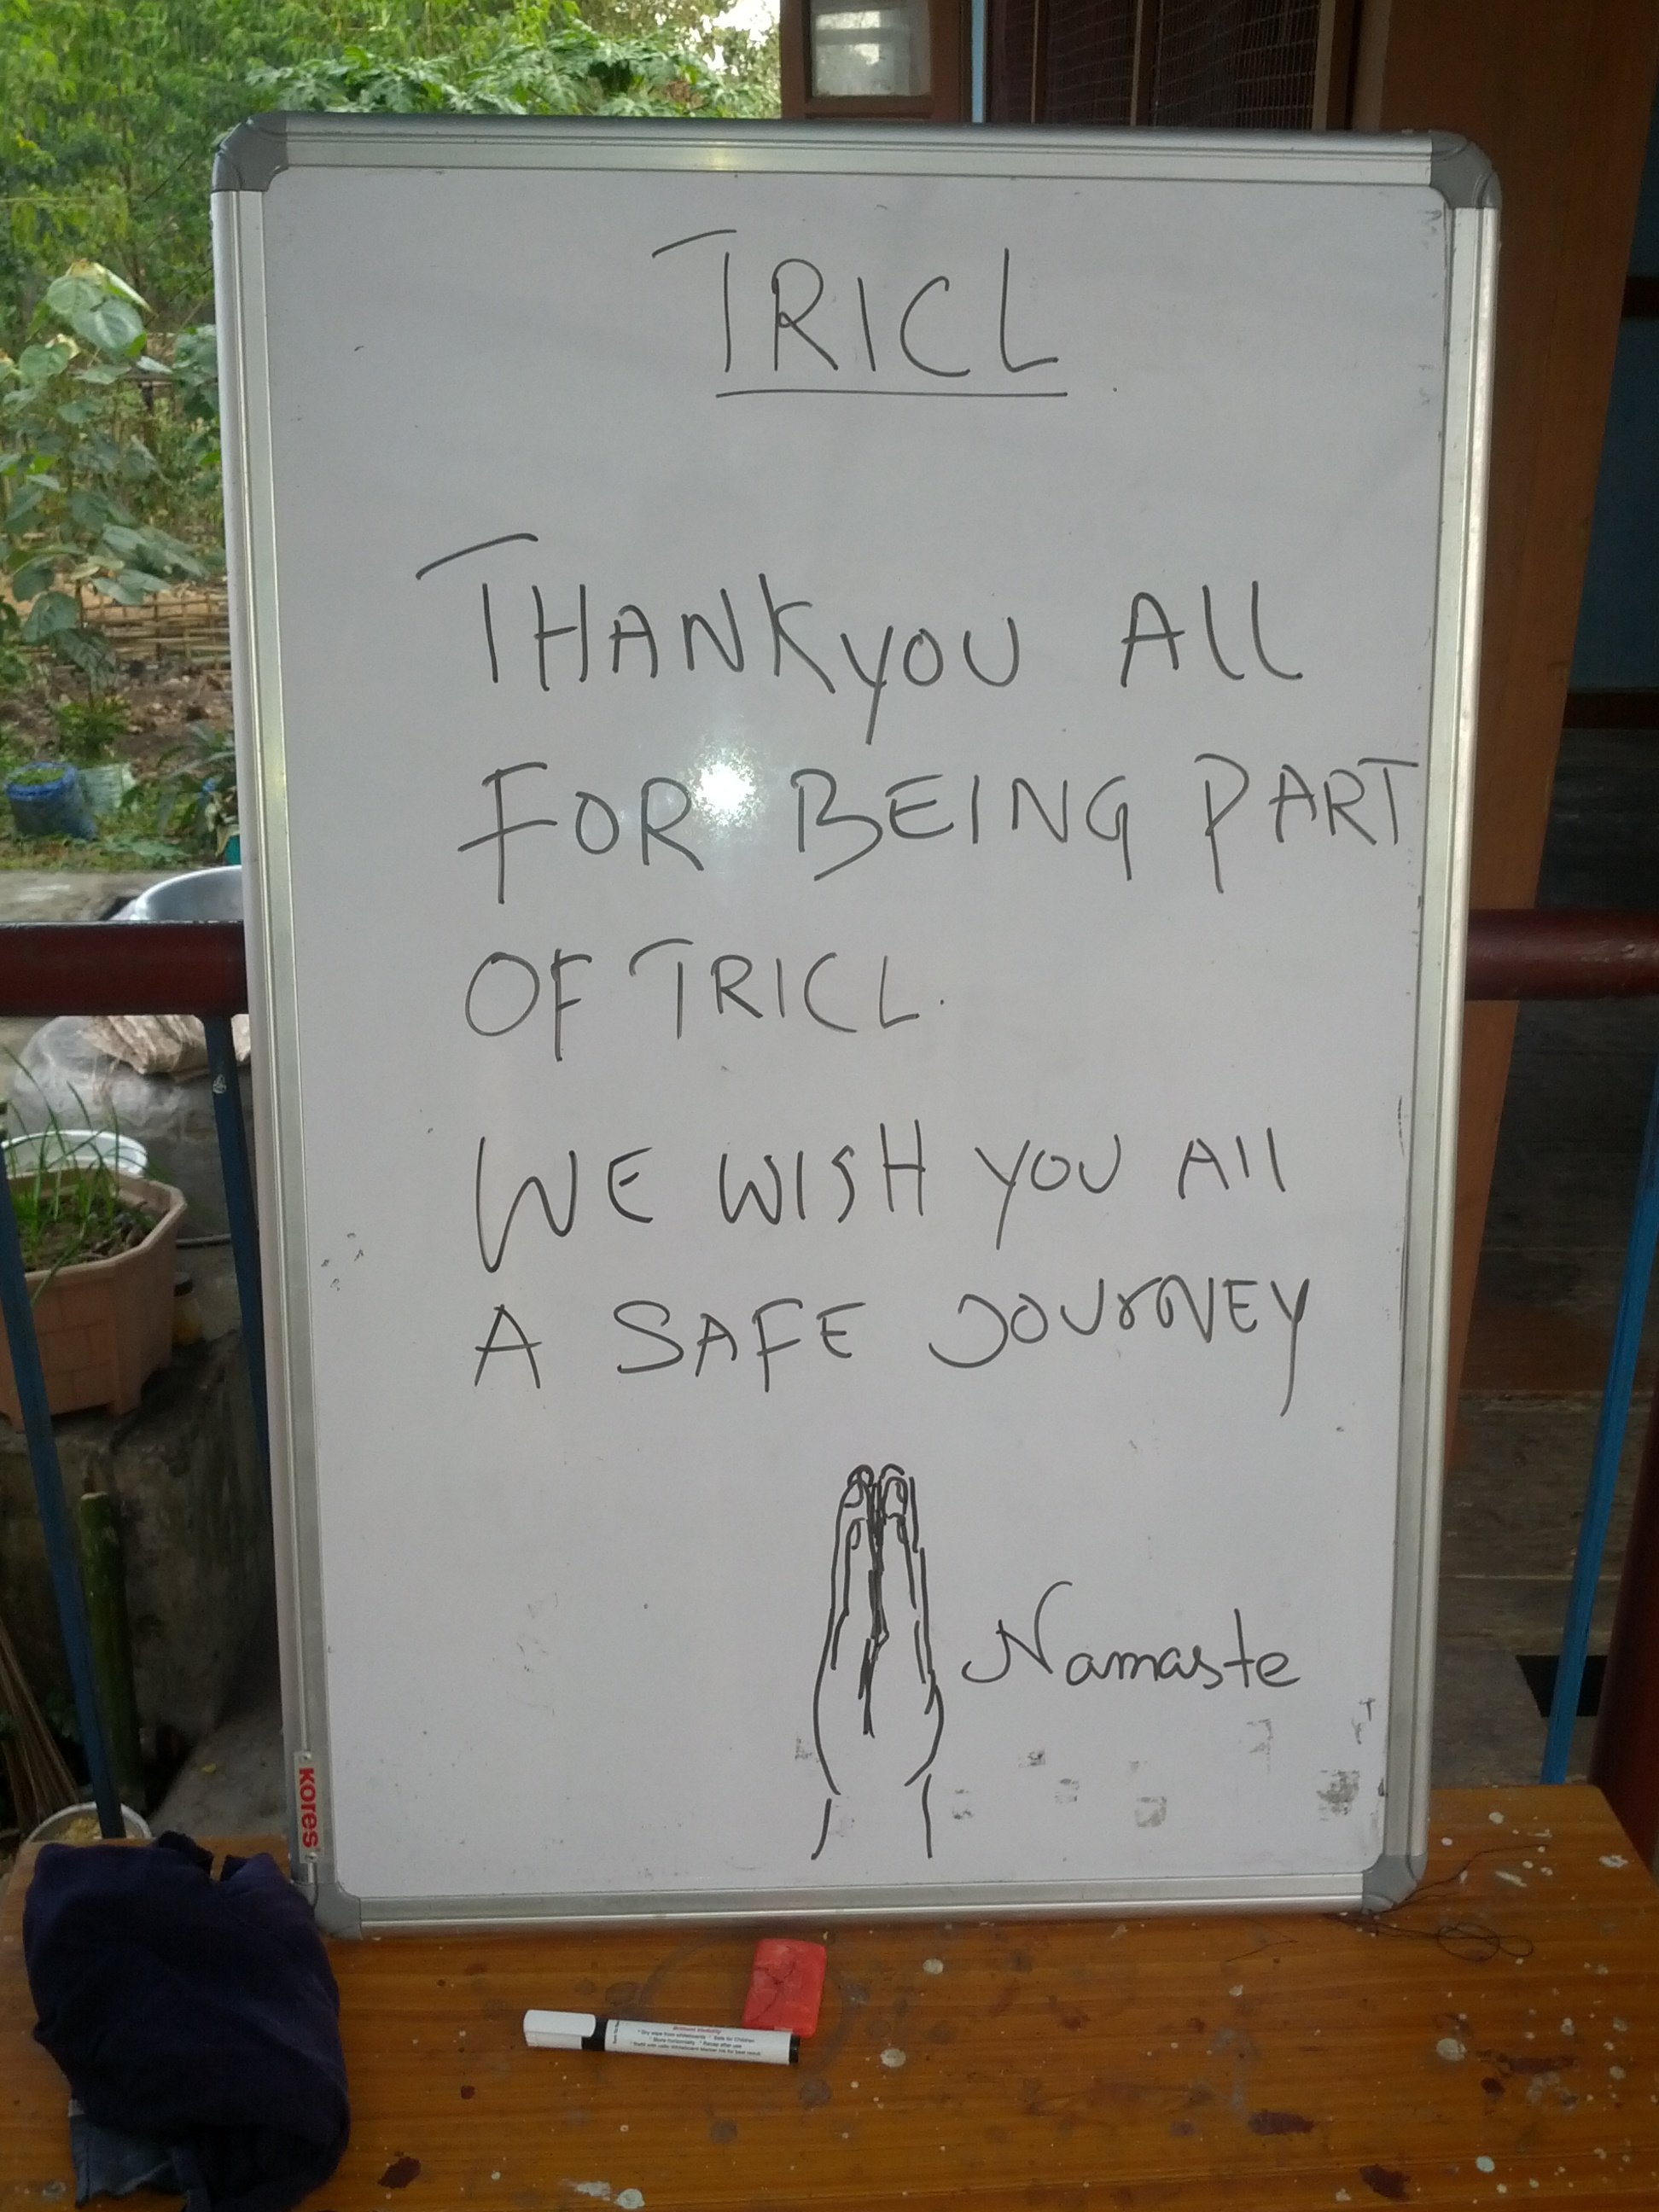 TRICL
THANKYOU All
FOR BEING PART
OF TRICL.
WE WISH YOU All
A SAFE JOURNEY
Namaste
kores